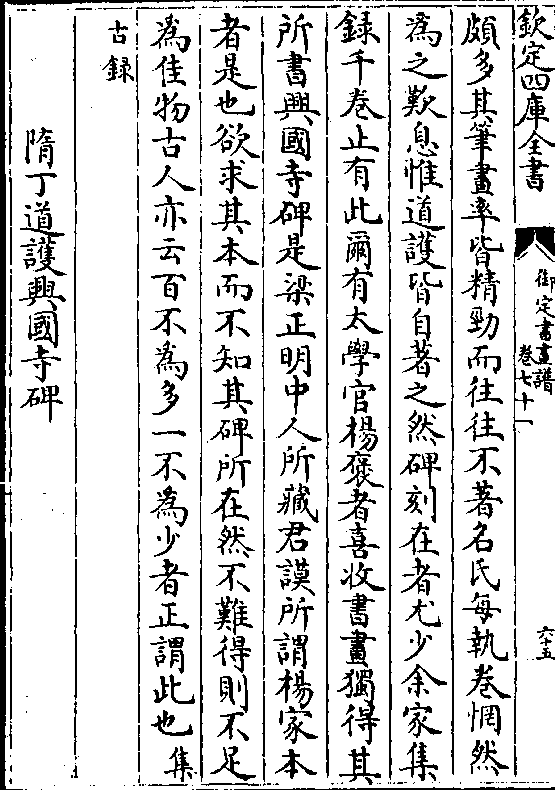 欽定四庫全書
御定書畫譜
卷七十一
六十五
頗多其筆畫率皆精勁而往往不著名氏每執卷惘然
為之歎息惟道護皆自著之然碑刻在者尤少余家集
録千卷止有此爾有太學官楊褒者喜收書畫獨得其
所書興國寺碑是梁正明中人所藏君謨所謂楊家本
者是也欲求其本而不知其碑所在然不難得則不足
為佳物古人亦云百不為多一不為少者正謂此也集
古録
隋丁道護興國寺碑